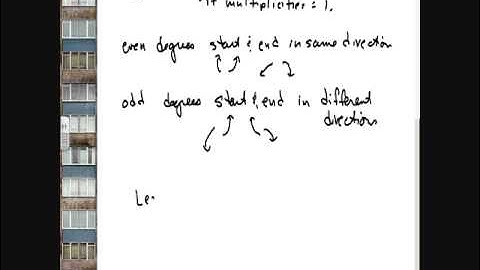 if multiplicities = 1.
even degrees start & end in same direction
odd degrees start & end in different
directions
Le